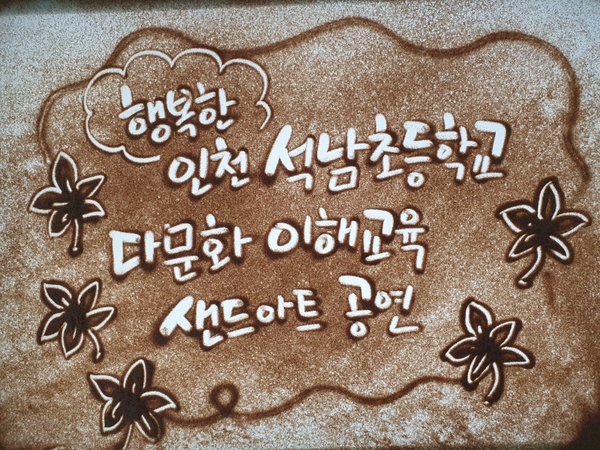 행복한
인천 석남초등학교
다문화 이해교육
샌드아트 공연